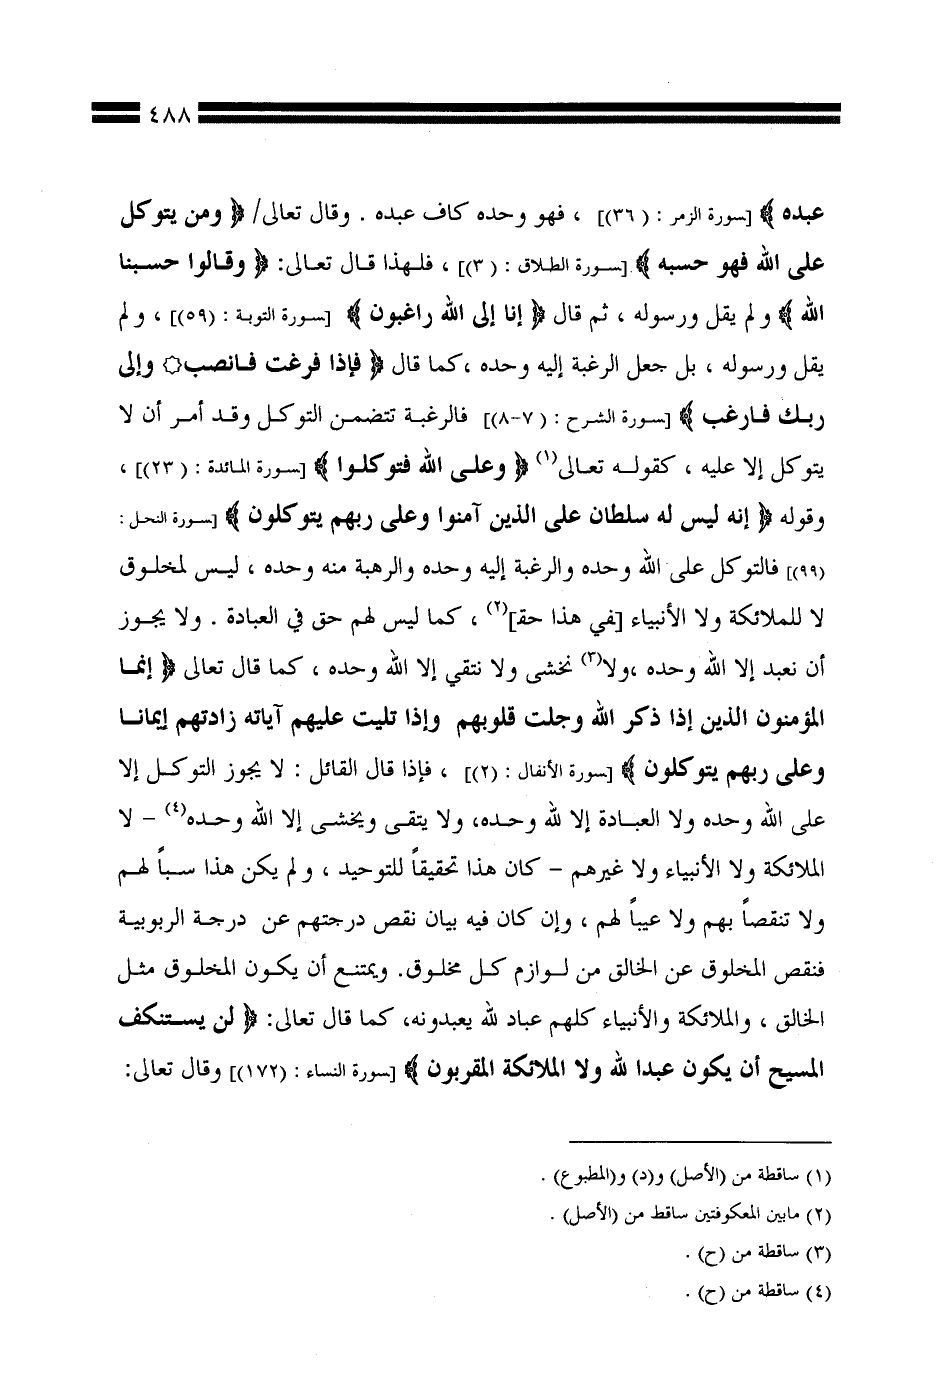 ٤٨٨
عبده ﴾ [سورة الزمر : ( ٣٦)] ، فهو وحده كاف عبده . وقال تعالى/ ﴿ ومن يتوكل
على الله فهو حسبه ﴾ [سورة الطلاق : ( ٣)] ، فلهذا قال تعالى: ﴿ وقالوا حسبنا
الله ﴾ ولم يقل ورسوله ، ثم قال ﴿ إنا إلى الله راغبون ﴾ [سورة التوبة : (٥٩)] ، ولم
يقل ورسوله ، بل جعل الرغبة إليه وحده ،كما قال ﴿ فإذا فرغت فانصب۞ وإلى
ربك فارغب ﴾ [سورة الشرح : ( ٧-٨)] فالرغبة تتضمن التوكل وقد أمر أن لا
يتوكل إلا عليه ، كقوله تعالى(١) ﴿ وعلى الله فتوكلوا ﴾ [سورة المائدة : ( ٢٣)] ،
وقوله ﴿ إنه ليس له سلطان على الذين آمنوا وعلى ربهم يتوكلون ﴾ [سورة النحل :
(٩٩)] فالتوكل على الله وحده والرغبة إليه وحده والرهبة منه وحده ، ليس لمخلوق
لا للملائكة ولا الأنبياء [في هذا حق](٢) ، كما ليس لهم حق في العبادة . ولا يجوز
أن نعبد إلا الله وحده ،ولا(٣) نخشى ولا نتقي إلا الله وحده ، كما قال تعالى ﴿ إنما
المؤمنون الذين إذا ذكر الله وجلت قلوبهم وإذا تليت عليهم آياته زادتهم إيمانا
وعلى ربهم يتوكلون ﴾ [سورة الأنفال : (٢)] ، فإذا قال القائل : لا يجوز التوكل إلا
على الله وحده ولا العبادة إلا لله وحده، ولا يتقى ويخشى إلا الله وحده(٤) – لا
الملائكة ولا الأنبياء ولا غيرهم – كان هذا تحقيقاً للتوحيد ، ولم يكن هذا سباً لهم
ولا تنقصاً بهم ولا عيباً لهم ، وإن كان فيه بيان نقص درجتهم عن درجة الربوبية
فنقص المخلوق عن الخالق من لوازم كل مخلوق. ويمتنع أن يكون المخلوق مثل
الخالق ، والملائكة والأنبياء كلهم عباد لله يعبدونه، كما قال تعالى: ﴿ لن يستنكف
المسيح أن يكون عبدا لله ولا الملائكة المقربون ﴾ [سورة النساء : (١٧٢)] وقال تعالى:
(١) ساقطة من (الأصل) و(د) و(المطبوع) .
(٢) مابين المعكوفتين ساقط من (الأصل) .
(٣) ساقطة من (ح) .
(٤) ساقطة من (ح) .